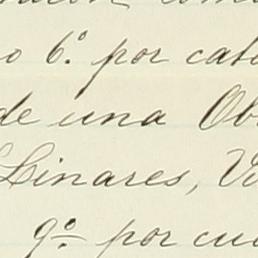 o 6º por cab
de una Ob
Linares, Vi
9º por cu